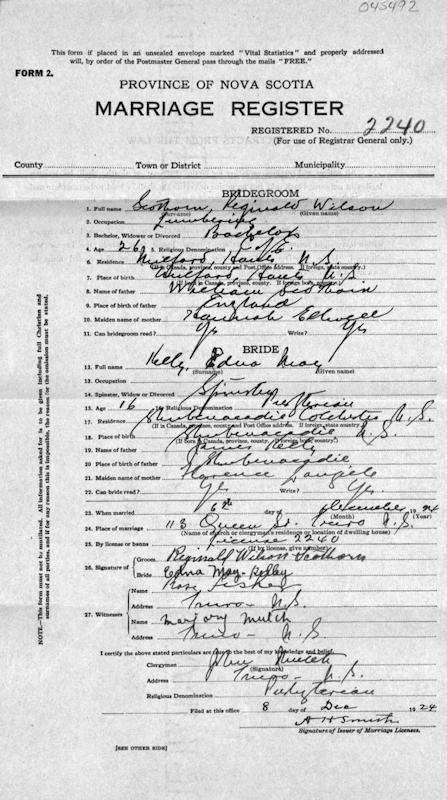 045492
This form if placed in an unsealed envelope marked "Vital Statistics" and properly addressed
will, by order of the Postmaster General pass through the mails "FREE."
FORM 2.
PROVINCE OF NOVA SCOTIA
MARRIAGE REGISTER
REGISTERED No. 2240
(For use of Registrar General only.)
County Town or District Municipality
BRIDEGROOM
1. Full name Scothorn, Reginald Wilson
(Surname) (Given name)
2. Occupation Lumbering
3. Bachelor, Widower or Divorced Bachelor
4. Age 26 5. Religious Denomination C of E.
6. Residence Milford, Hants N.S.
(If in Canada, province, county and Post Office address. If foreign, state country.)
7. Place of birth Milford, Hants N.S.
(If born in Canada, province, county. If foreign born, country.)
8. Name of father William Scothorn
9. Place of birth of father England
10. Maiden name of mother Hannah
11. Can bridegroom read? Yes Write? Yes
BRIDE
12. Full name Kelly, Edna May
(Surname) (Given name)
13. Occupation
14. Spinster, Widow or Divorced Spinster
15. Age 16 16. Religious Denomination Presbyterian
17. Residence Shubenacadie Colchester N.S.
(If in Canada, province, county and Post Office address. If foreign, state country.)
18. Place of birth Shubenacadie N.S.
(If born in Canada, province, county. If foreign born, country.)
19. Name of father James Kelly
20. Place of birth of father Shubenacadie
21. Maiden name of mother Florence
22. Can bride read? Yes Write? Yes
23. When married 6th day of December 1924
(Month) (Year)
24. Place of marriage 113 Queen St. Truro N.S.
(Name of church or clergyman's residence or location of dwelling house)
25. By license or banns License 2260
(If by license, give number)
26. Signature of
Groom Reginald Wilson Scothorn
Bride Edna May Kelley
27. Witnesses
Name Rose Fisher
Address Truro - N.S.
Name Marjory Mutch
Address Truro - N.S.
I certify the above stated particulars are true to the best of my knowledge and belief.
Clergyman John Mutch
(Signature)
Address Truro - N.S.
Religious Denomination Presbyterian
Filed at this office 8 day of Dec 1924
A H Smith
Signature of Issuer of Marriage Licenses.
[SEE OTHER SIDE]
NOTE.—This form must not be mutilated. All information asked for is to be given including full Christian and
surnames of all parties, and if for any reason this is impossible, the reason for the omission must be stated.